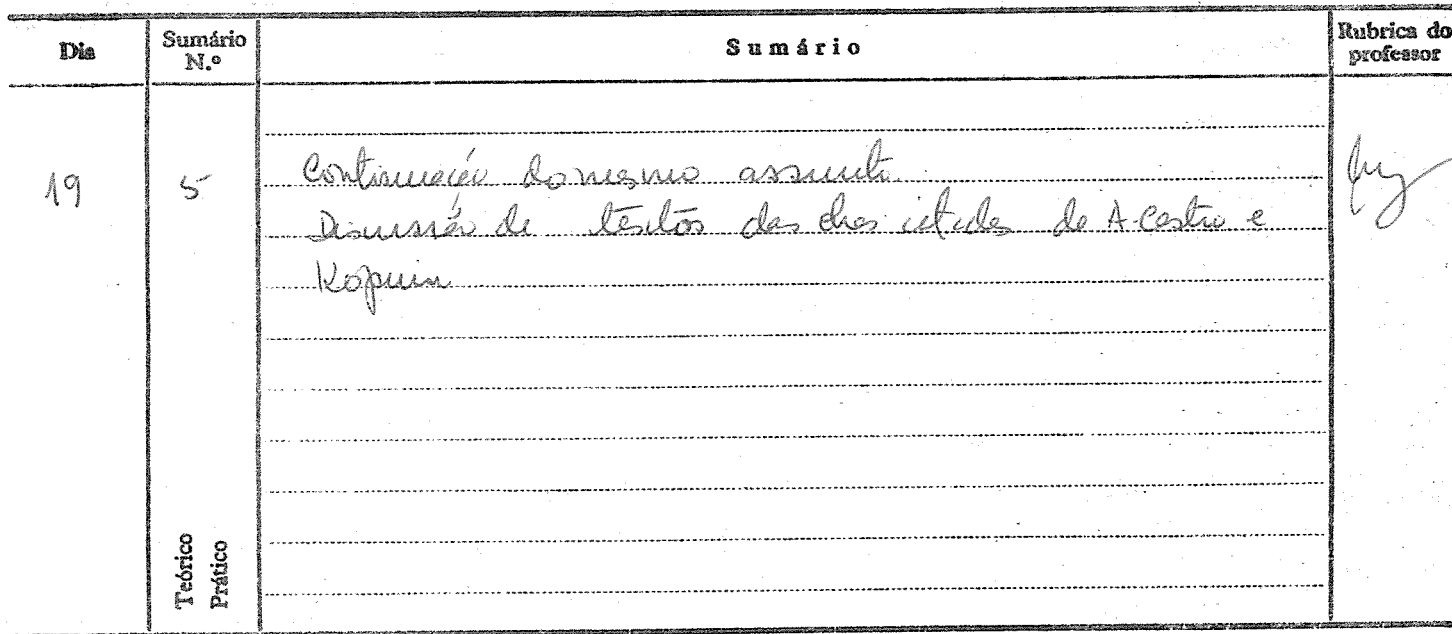 Dia
Sumário N.º
Sumário
Rubrica do professor
19
5
Continuação do mesmo assunto.
Discussão de textos das de A. Castro e
Kopnin
Teórico
Prático